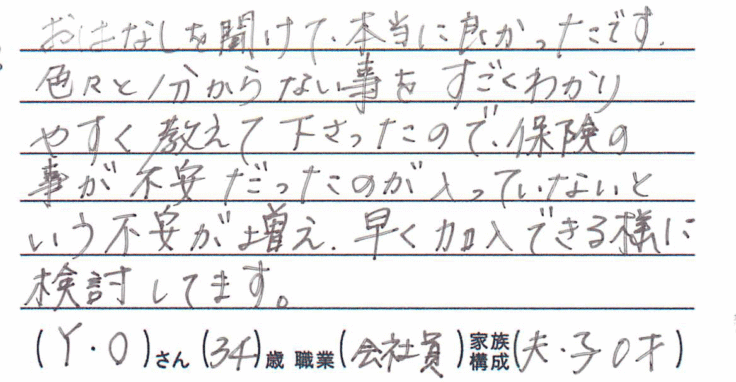 おはなしを聞けて、本当に良かったです。
色々と分からない事をすごくわかり
やすく教えて下さったので、保険の
事が不安だったのが入っていないと
いう不安が増え、早く加入できる様に
検討してます。
(Y・O)さん(34)歳 職業(会社員)家族構成(夫・子0才)